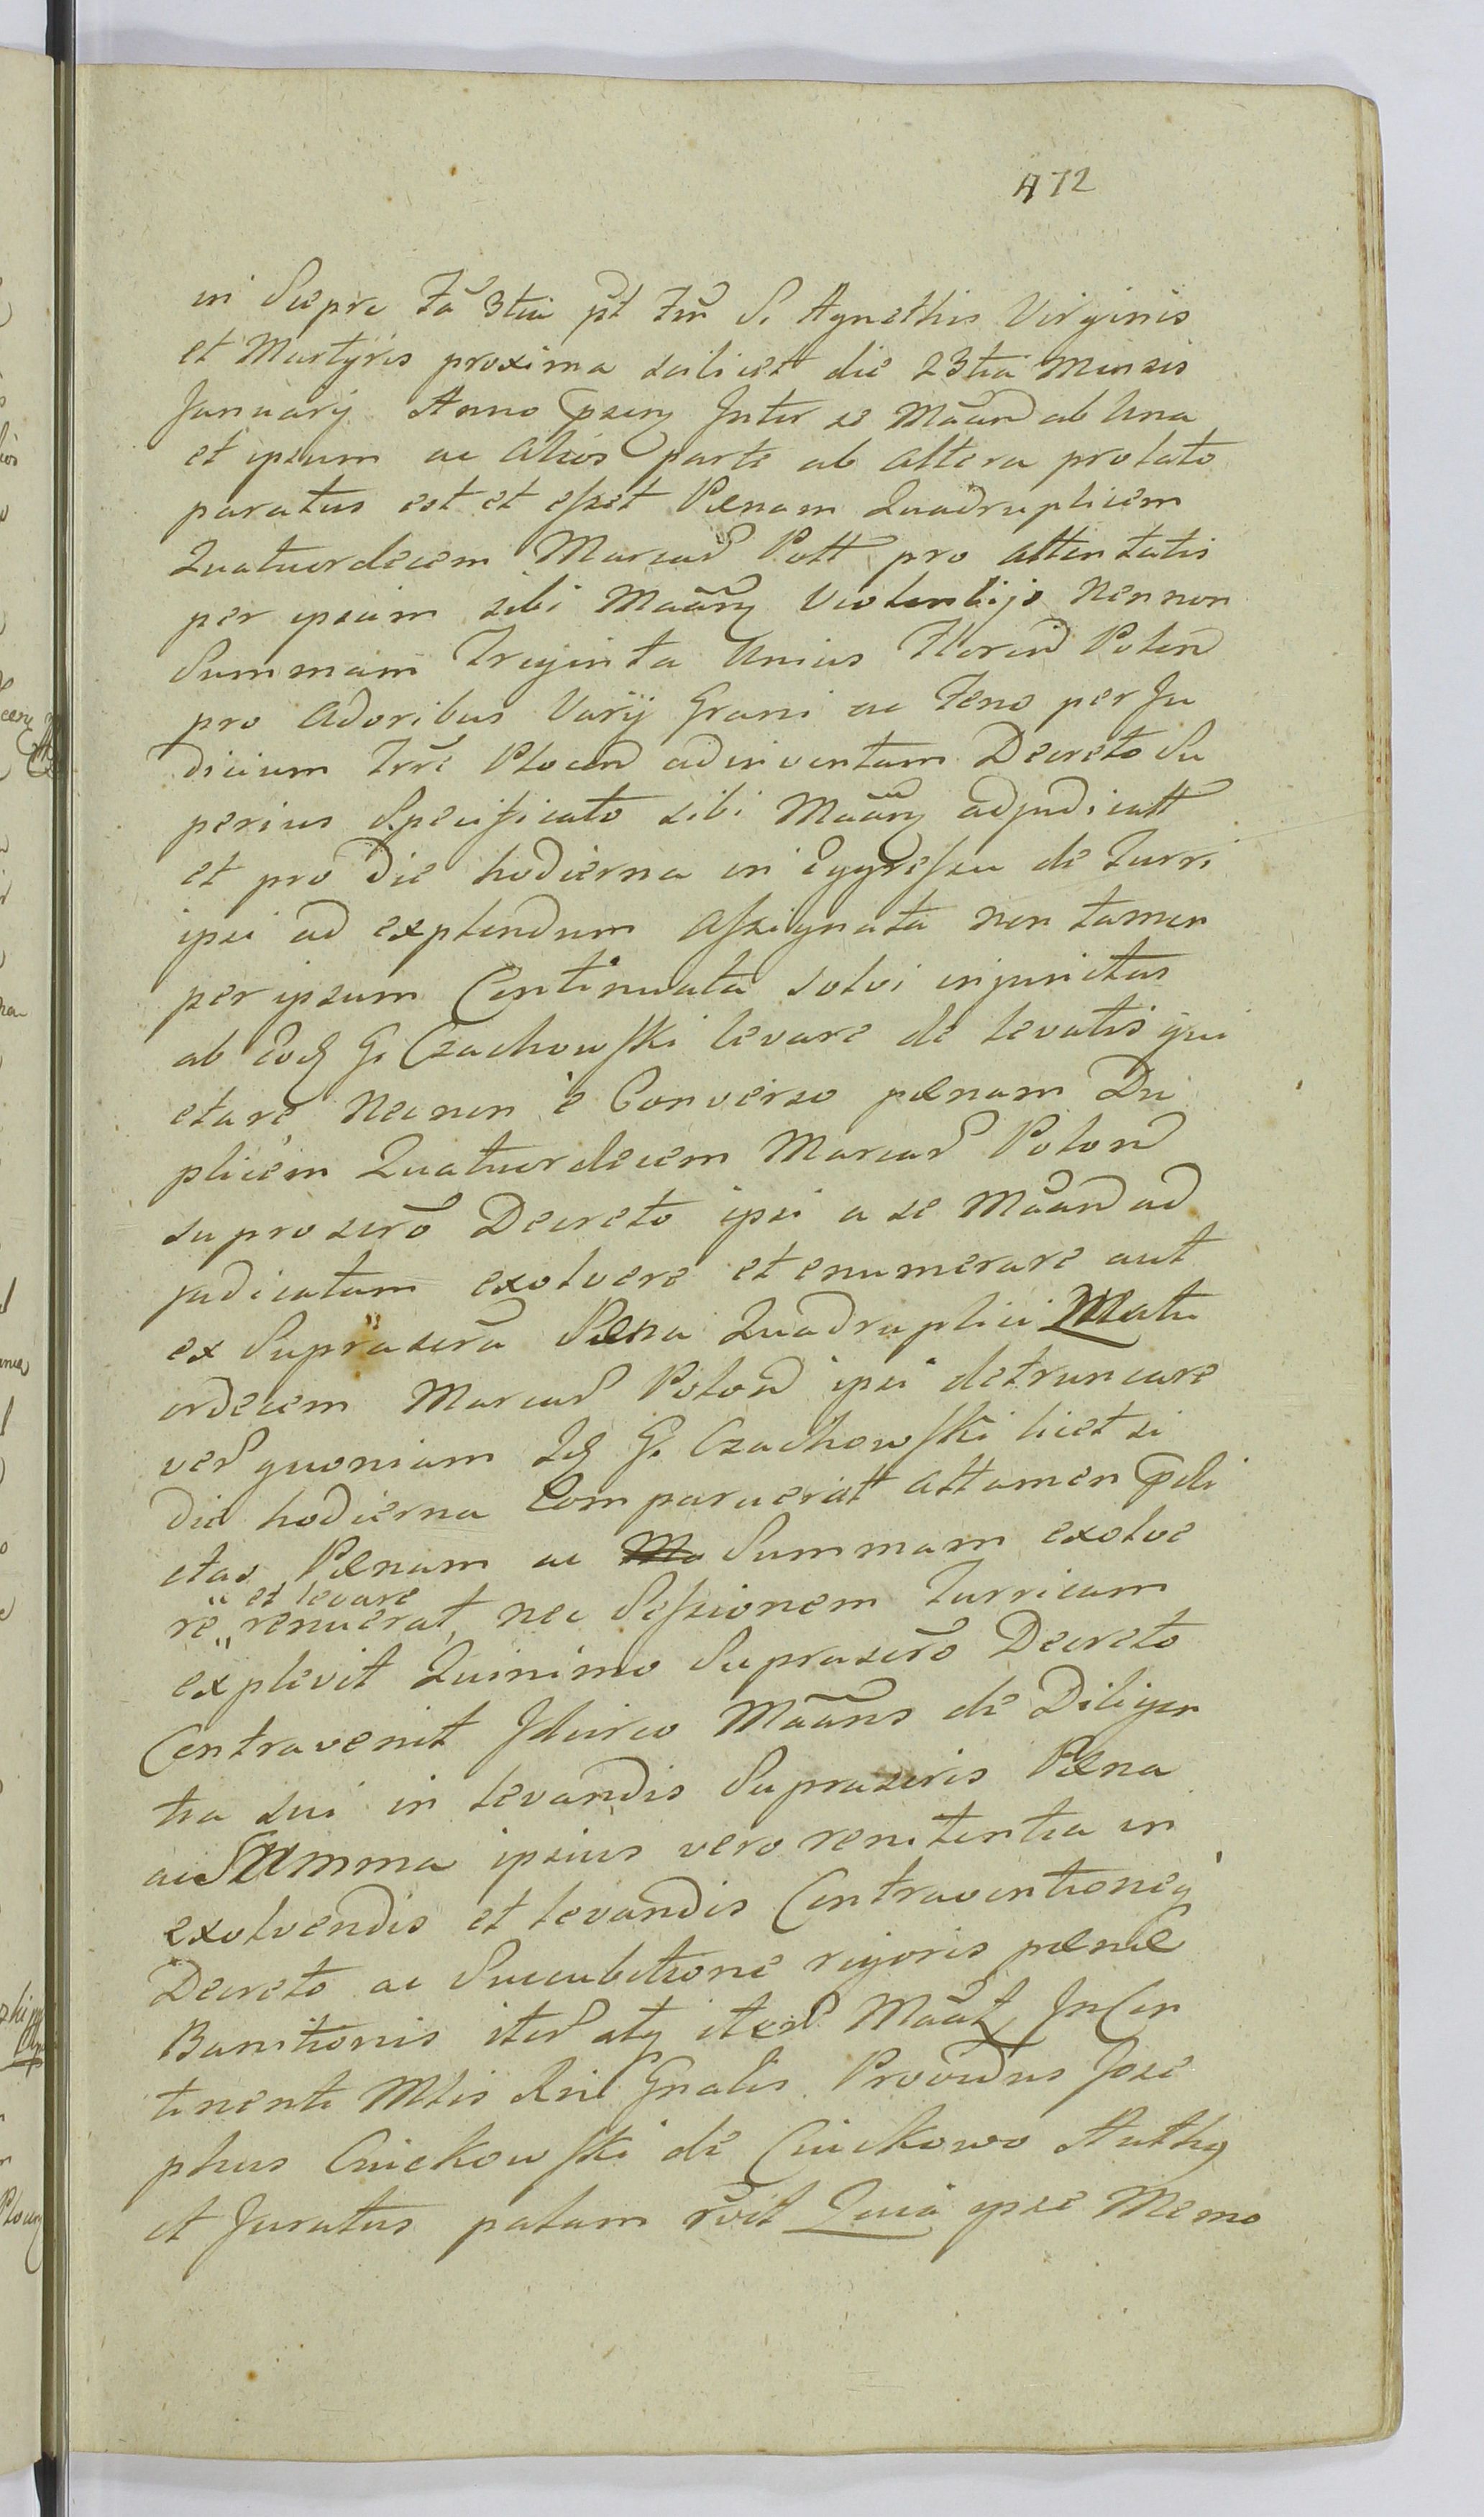 472
in Sierpc Fa 3tia pt Fm S. Agnethis Virginis
et Martyris proxima scilicet die 23tia Mensis
January Anno pseny Inter se Maan ab Una
et ipsum ac alios parte ab altera prolato
paratus est et esset Pænam Quadruplicem
Quatuordecem Marcar Poll pro attentatis
per ipsum sibi Maany Violentijs Necnon
Summam Triginta Unius Floren Polon
pro adoribus Varÿ Grani ac Feno per Ju
dicium Trre Plocen adinventam Decreto Su
perius Specificato sibi Maany adjudicatt
et pro Die hodierna in Eggressu de Turri
ipsi ad explendum assignata non tamen
per ipsum Continuata solvi injunctas
ab Eod G. Czachowski levare de levatis qui
etare Necnon e Converso pænam Du
plicem Quatuordecem Marcar Polon
suprascro Decreto ipsi a se Maan ad
judicatam exolvere et enumerare aut
ex Suprascra Pæna Quadruplici Quatu
ordecem Marcar Polon ipsi detruncare
ver quoniam Id G. Czachowski licet si
die hodierna Comparuerat attamen pdi
ctas Pænam ac Summam exolve
et levare
re renuerat, nec Sessionem Turricam
explevit Quinimo Suprascro Decreto
Contravenit Idcirco Maans de Diligen
tia sui in levandis Suprascris Pæna
ac Summa ipsius vero renitentia in
exolvendis et levandis Contraventioneq
Decreto ac Succubitione rigoris pænæ
Banitionis iter atq iter Maat, InCon
tinenti Mtis Rnil Gnalis Providus Jose
phus Cwiekowski de Cwiekowo Authq
et Juratus palam rvit Quia ipse Memo